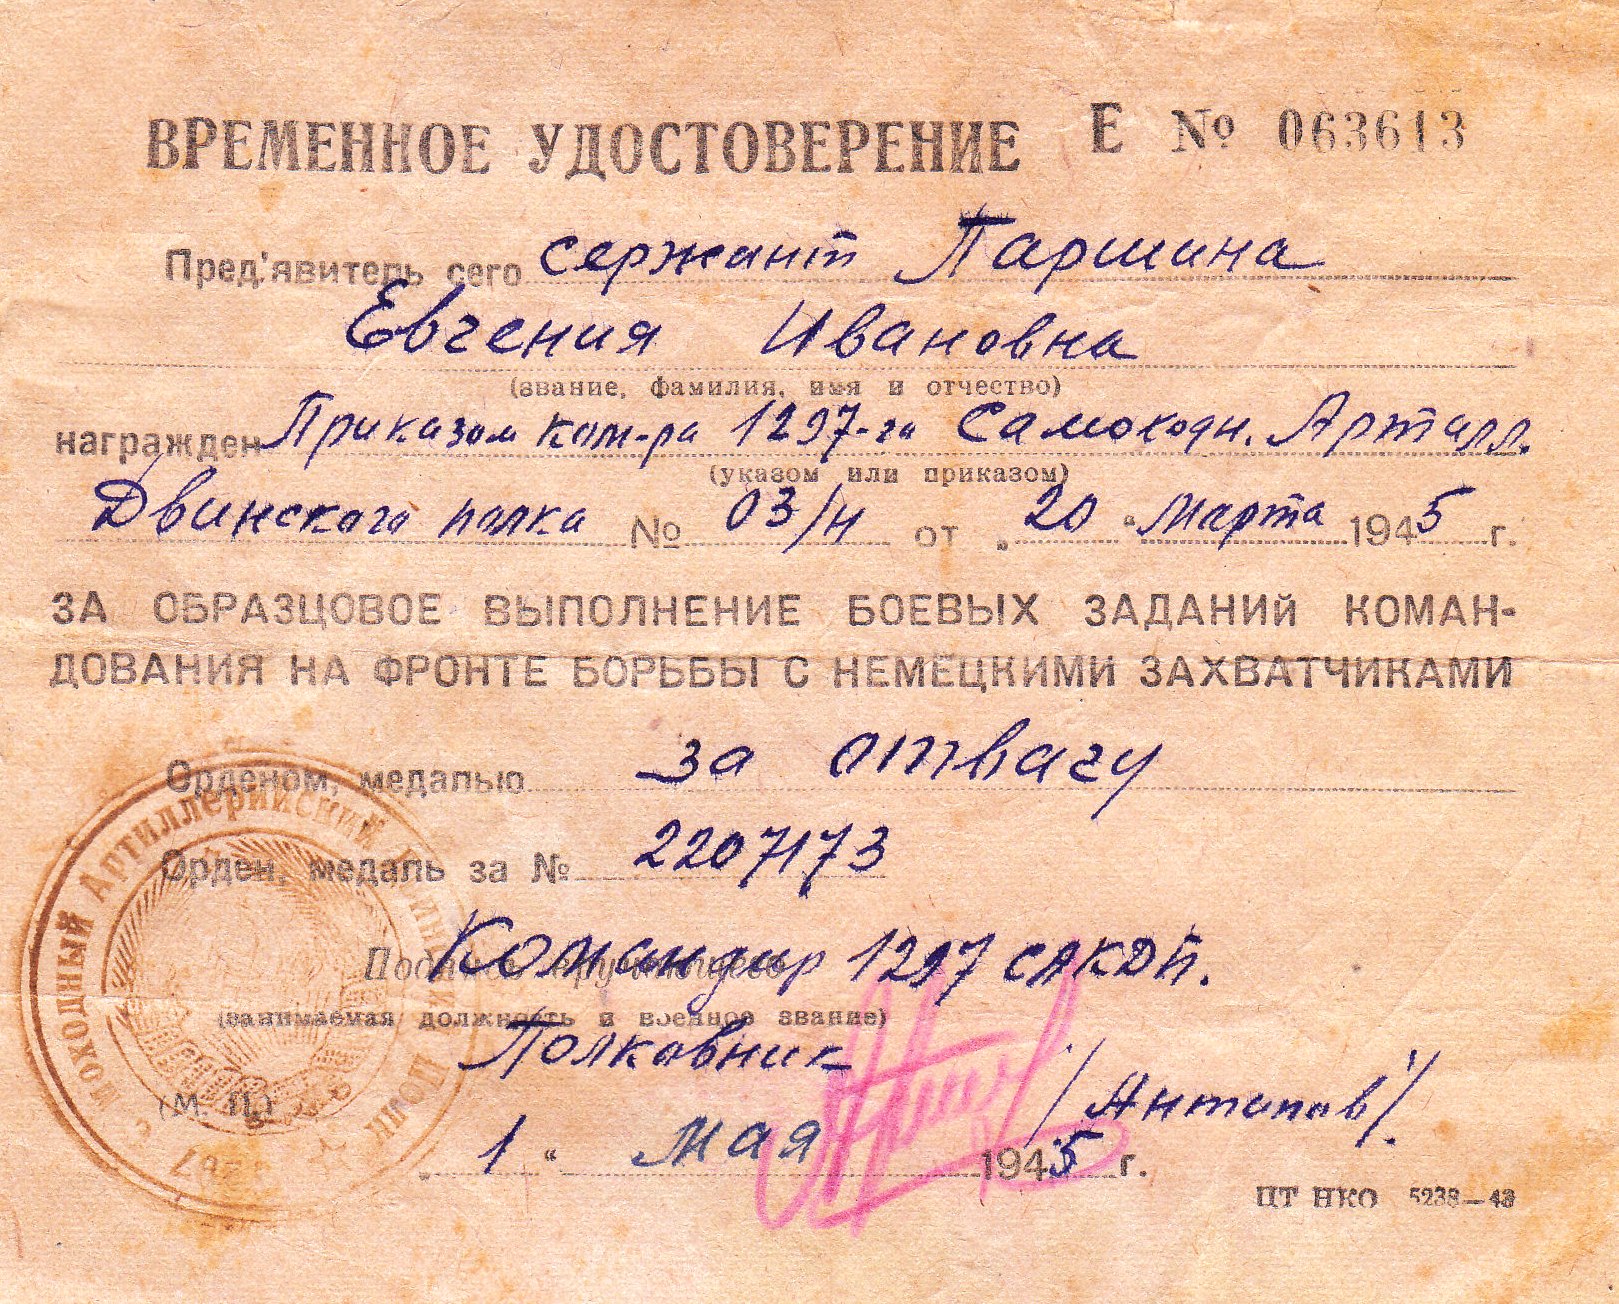 ВРЕМЕННОЕ УДОСТОВЕРЕНИЕ Е № 063613
Пред'явитель сего сержант Паршина
Евгения Ивановна
(звание, фамилия, имя и отчество)
награжден Приказом ком-ра 1297-го Самоходн. Артилл.
(указом или приказом)
Двинского полка № 03/н от „20 “ марта 1945 г.
ЗА ОБРАЗЦОВОЕ ВЫПОЛНЕНИЕ БОЕВЫХ ЗАДАНИЙ КОМАН-
ДОВАНИЯ НА ФРОНТЕ БОРЬБЫ С НЕМЕЦКИМИ ЗАХВАТЧИКАМИ
Орденом, медалью за отвагу
Орден, медаль за № 2207173
Командир 1297 САКДП.
(занимаемая должность и военное звание)
Полковник /Антипов/.
(М. П.)
„ 1 “ мая 1945 г.
ЦТ НКО 5238—43
Самоходный Артиллерийский Полк